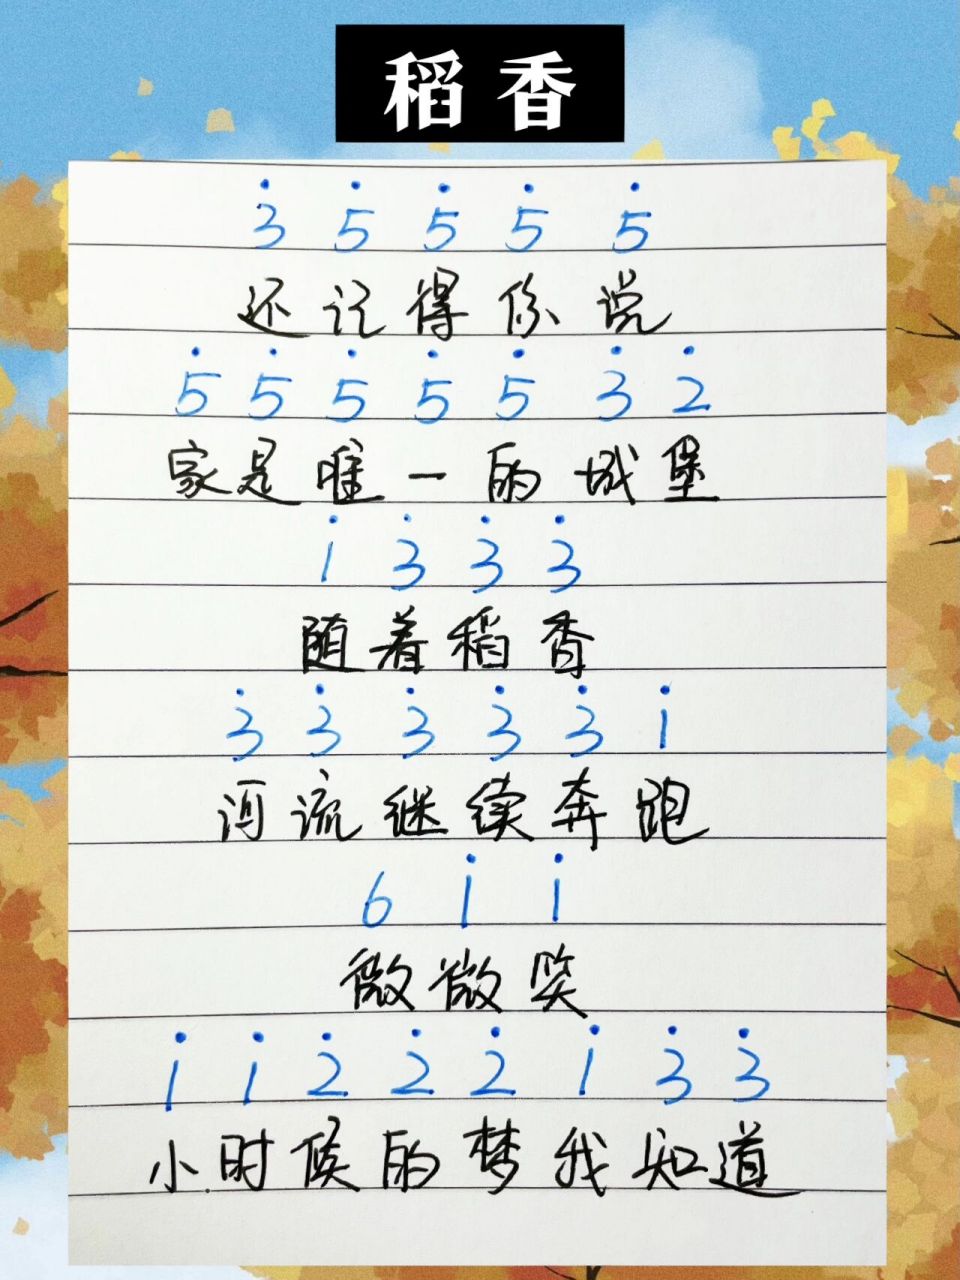 稻香
3̇ 5̇ 5̇ 5̇ 5̇
还记得你说
5̇ 5̇ 5̇ 5̇ 5̇ 3̇ 2̇
家是唯一的城堡
1̇ 3̇ 3̇ 3̇
随着稻香
3̇ 3̇ 3̇ 3̇ 3̇ 1̇
河流继续奔跑
6 1̇ 1̇
微微笑
1̇ 1̇ 2̇ 2̇ 2̇ 1̇ 3̇ 3̇
小时候的梦我知道